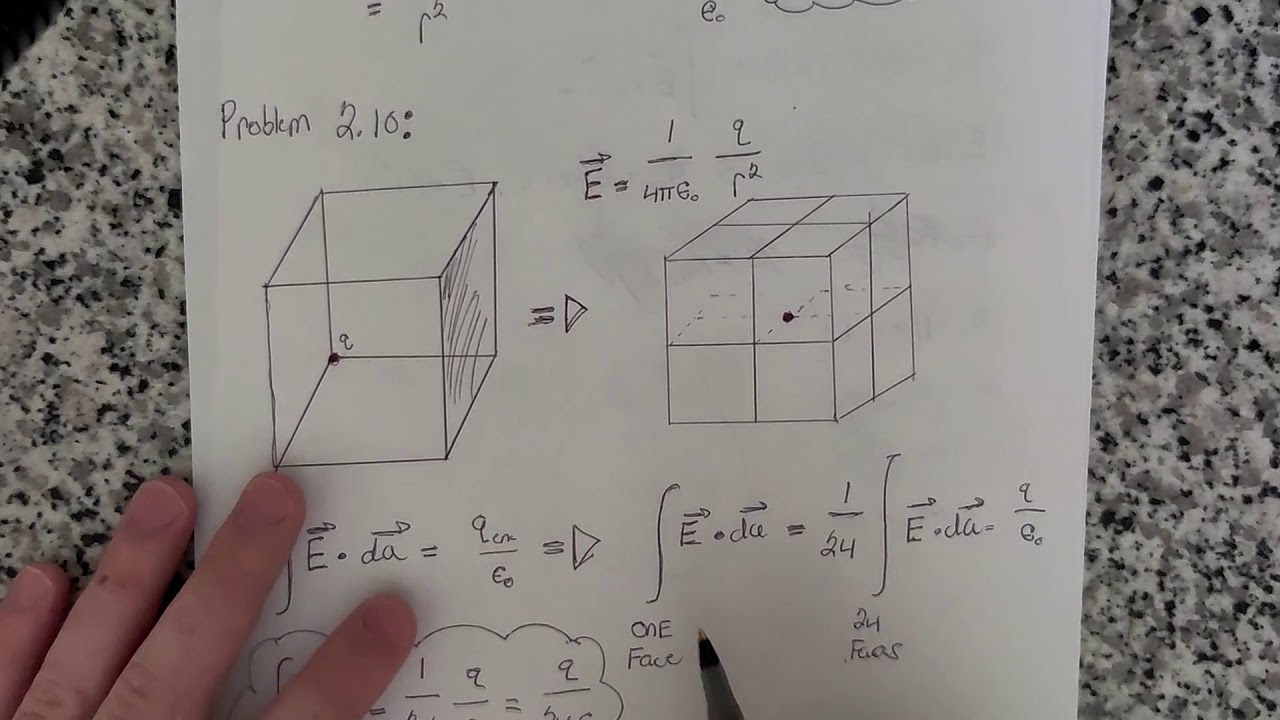 = r²
ϵ₀
Problem 2.10:
E⃗ = 1/4πϵ₀ q/r²
q
≡▷
∫ E⃗ • da⃗ = qenc/ϵ₀ ≡▷ ∫ E⃗ • da⃗ = 1/24 ∫ E⃗ • da⃗ = q/ϵ₀
OnE
Face
24
Faces
= 1/24 q = q/24ϵ